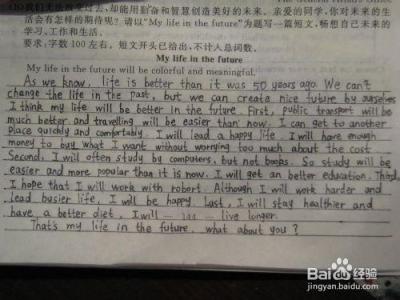 却能用勤奋和智慧创造美好的未来。亲爱的同学,你对未来的生
活会有怎样的期待呢?请以“My life in the future”为题写一篇短文,畅想自己未来的
学习、工作和生活。
要求:字数100左右,短文开头已给出,不计入总词数。
My life in the future
My life in the future will be colorful and meaningful.
As we know, life is better than it was 50 years ago. We can't
change the life in the past, but we can create nice future by ourselves
I think my life will be better in the future. First, public transport will be
much better and travelling will be easier than now. I can get to another
place quickly and comfortably. I will lead a happy life. I will have enough
money to buy what I want without worrying too much about the cost
Second, I will often study by computers, but not books. So study will be
easier and more popular than it is now. I will get an better education. Third,
I hope that I will work with robert. Although I will work harder and
lead busier life, I will be happy. Last, I will stay healthier and
have a better diet, I will live longer.
That's my life in the future, what about you?
Baidu 经验
jingyan.baidu.com